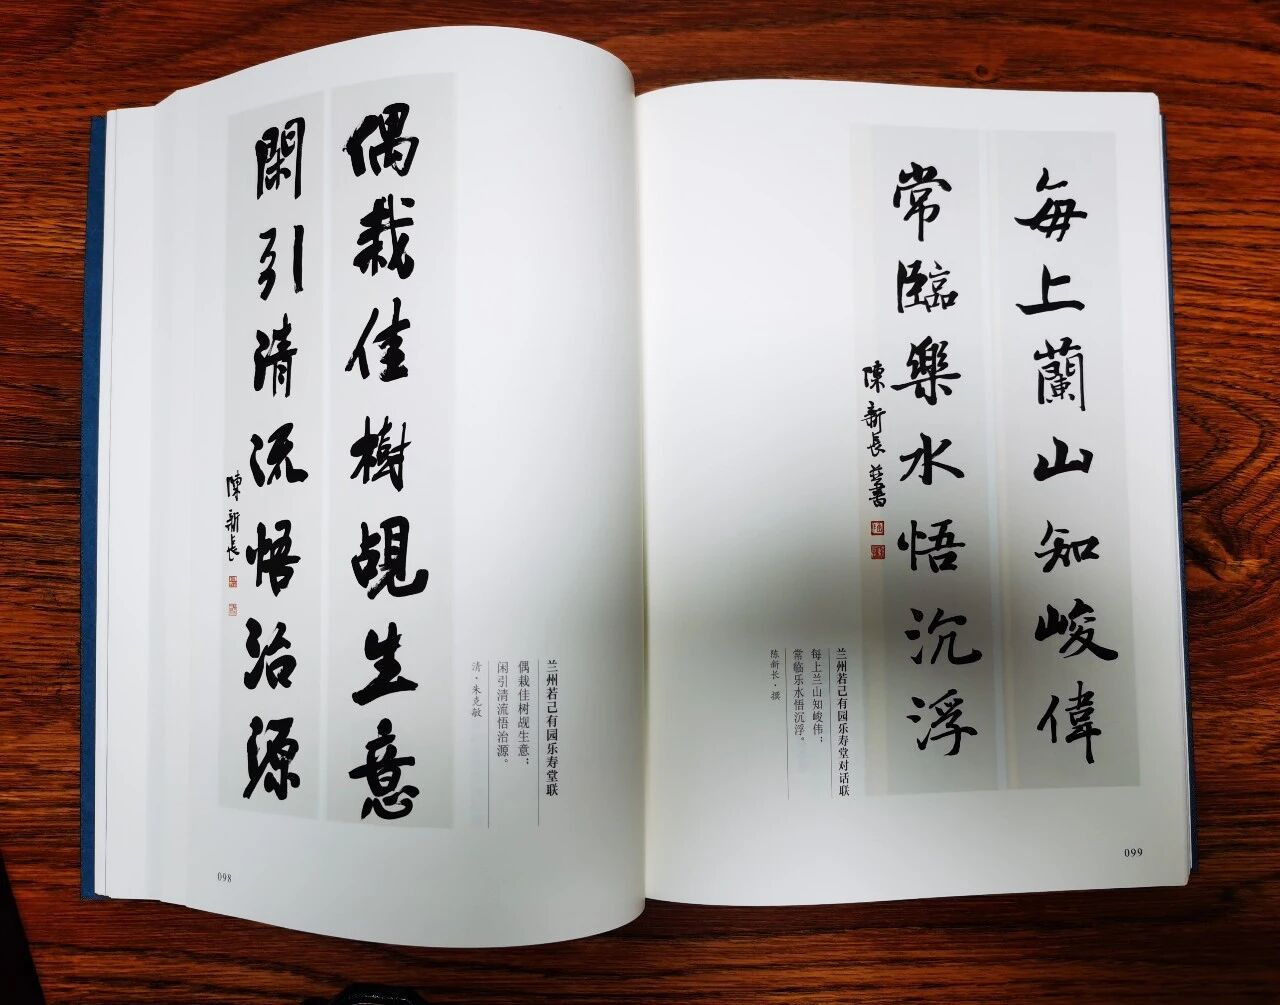 偶栽佳樹覘生意
閑引清流悟治源
陳新長
兰州若己有园乐寿堂联
偶栽佳树觇生意；
闲引清流悟治源。
清·朱克敏
098
每上蘭山知峻偉
常臨樂水悟沉浮
陳新長並書
兰州若己有园乐寿堂对话联
每上兰山知峻伟；
常临乐水悟沉浮。
陈新长·撰
099